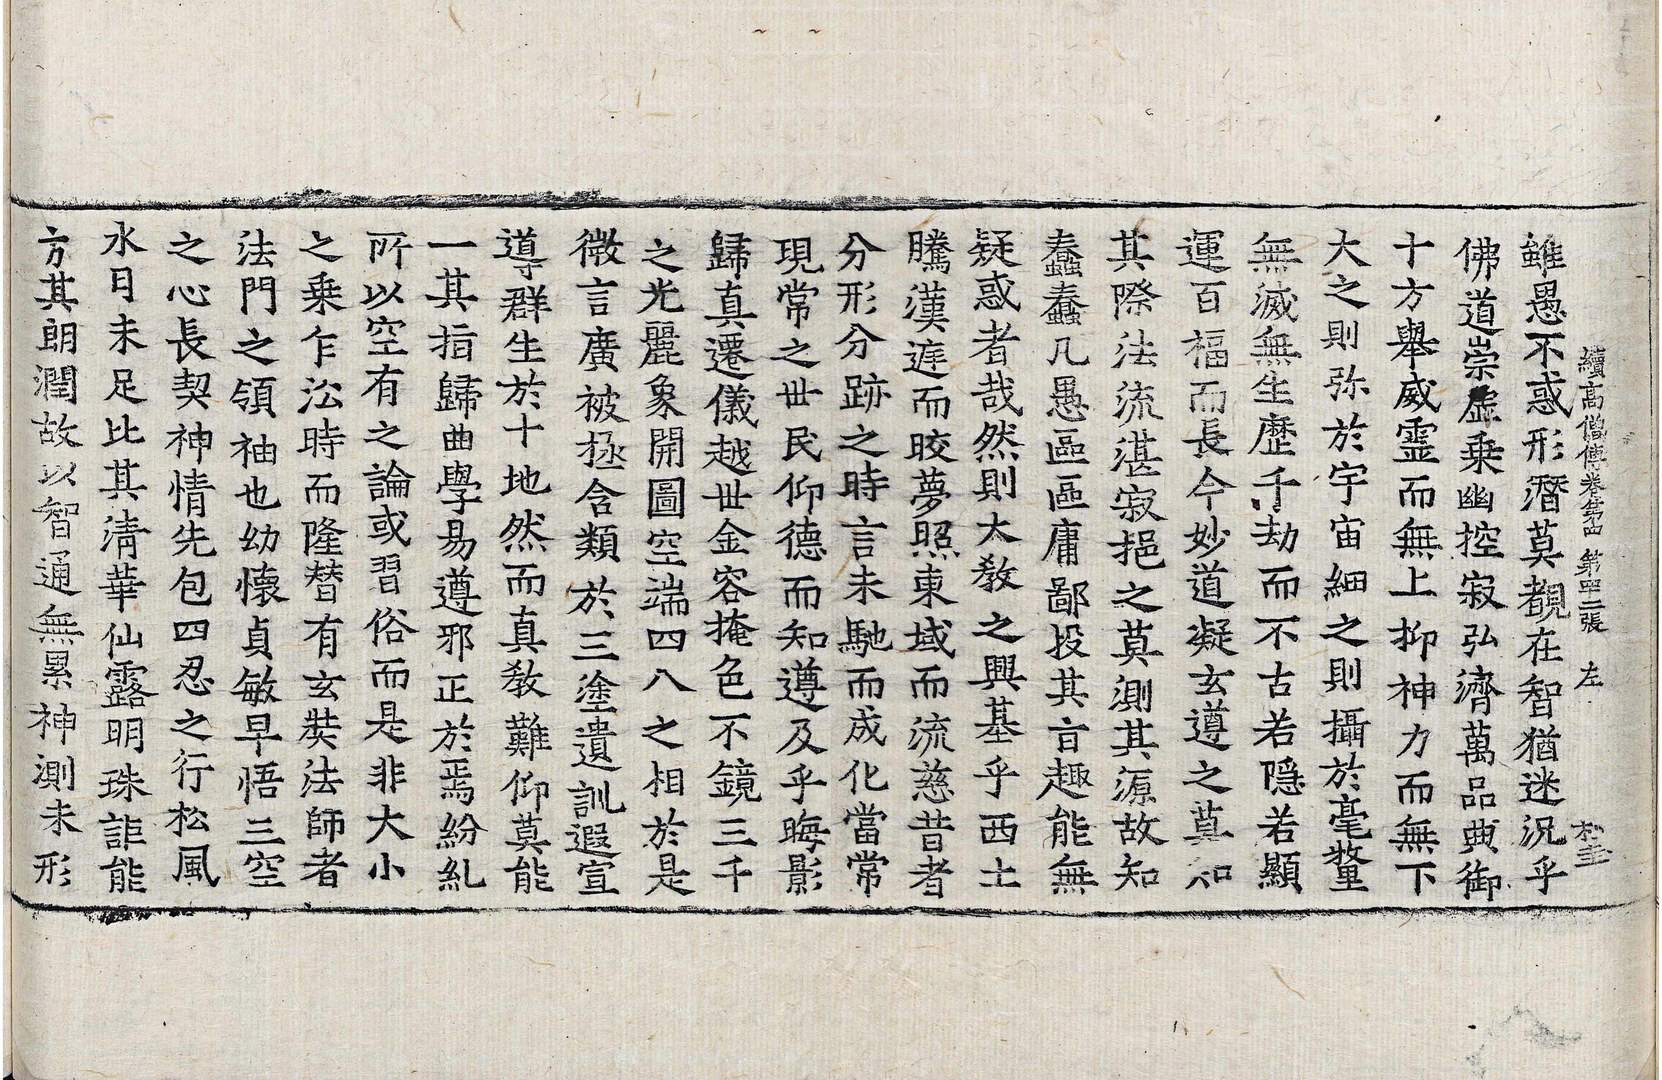 續高僧傳卷第四 第四十二張 左
雖愚不惑形潛莫覩在智猶迷況乎
佛道崇虛乗幽控寂弘濟萬品典御
十方舉威靈而無上抑神力而無下
大之則弥於宇宙細之則攝於毫氂
無滅無生歷千劫而不古若隱若顯
運百福而長今妙道凝玄遵之莫知
其際法流湛寂挹之莫測其源故知
蠢蠢凡愚區區庸鄙投其旨趣能無
疑惑者哉然則大教之興基乎西土
騰漢遅而皎夢照東域而流慈昔者
分形分跡之時言未馳而成化當常
現常之世民仰德而知遵及乎晦影
歸真遷儀越世金容掩色不鏡三千
之光麗象開圖空端四八之相於是
微言廣被拯含類於三塗遺訓遐宣
導群生於十地然而真教難仰莫能
一其指歸曲學易遵邪正於焉紛糺
所以空有之論或習俗而是非大小
之乗乍㳂時而隆替有玄奘法師者
法門之領袖也幼懷貞敏早悟三空
之心長契神情先包四忍之行松風
水日未足比其清華仙露明珠詎能
方其朗潤故以智通無累神測未形